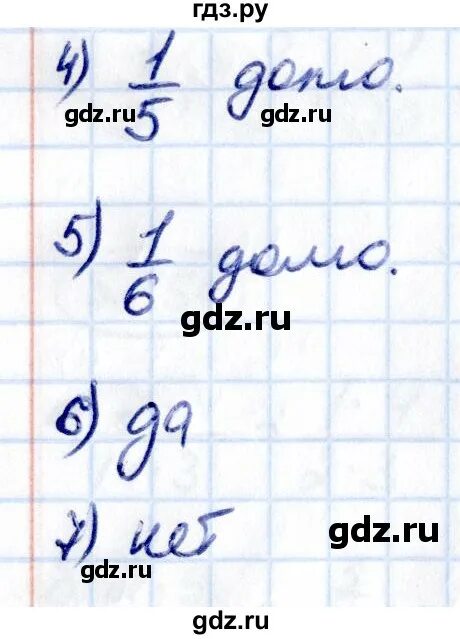 гдз.ру
4) 1/5 долю.
gdz.ru gdz.ru
5) 1/6 долю.
gdz.ru
6) да
gdz.ru
7) нет gdz.ru
gdz.ru
gdz.ru